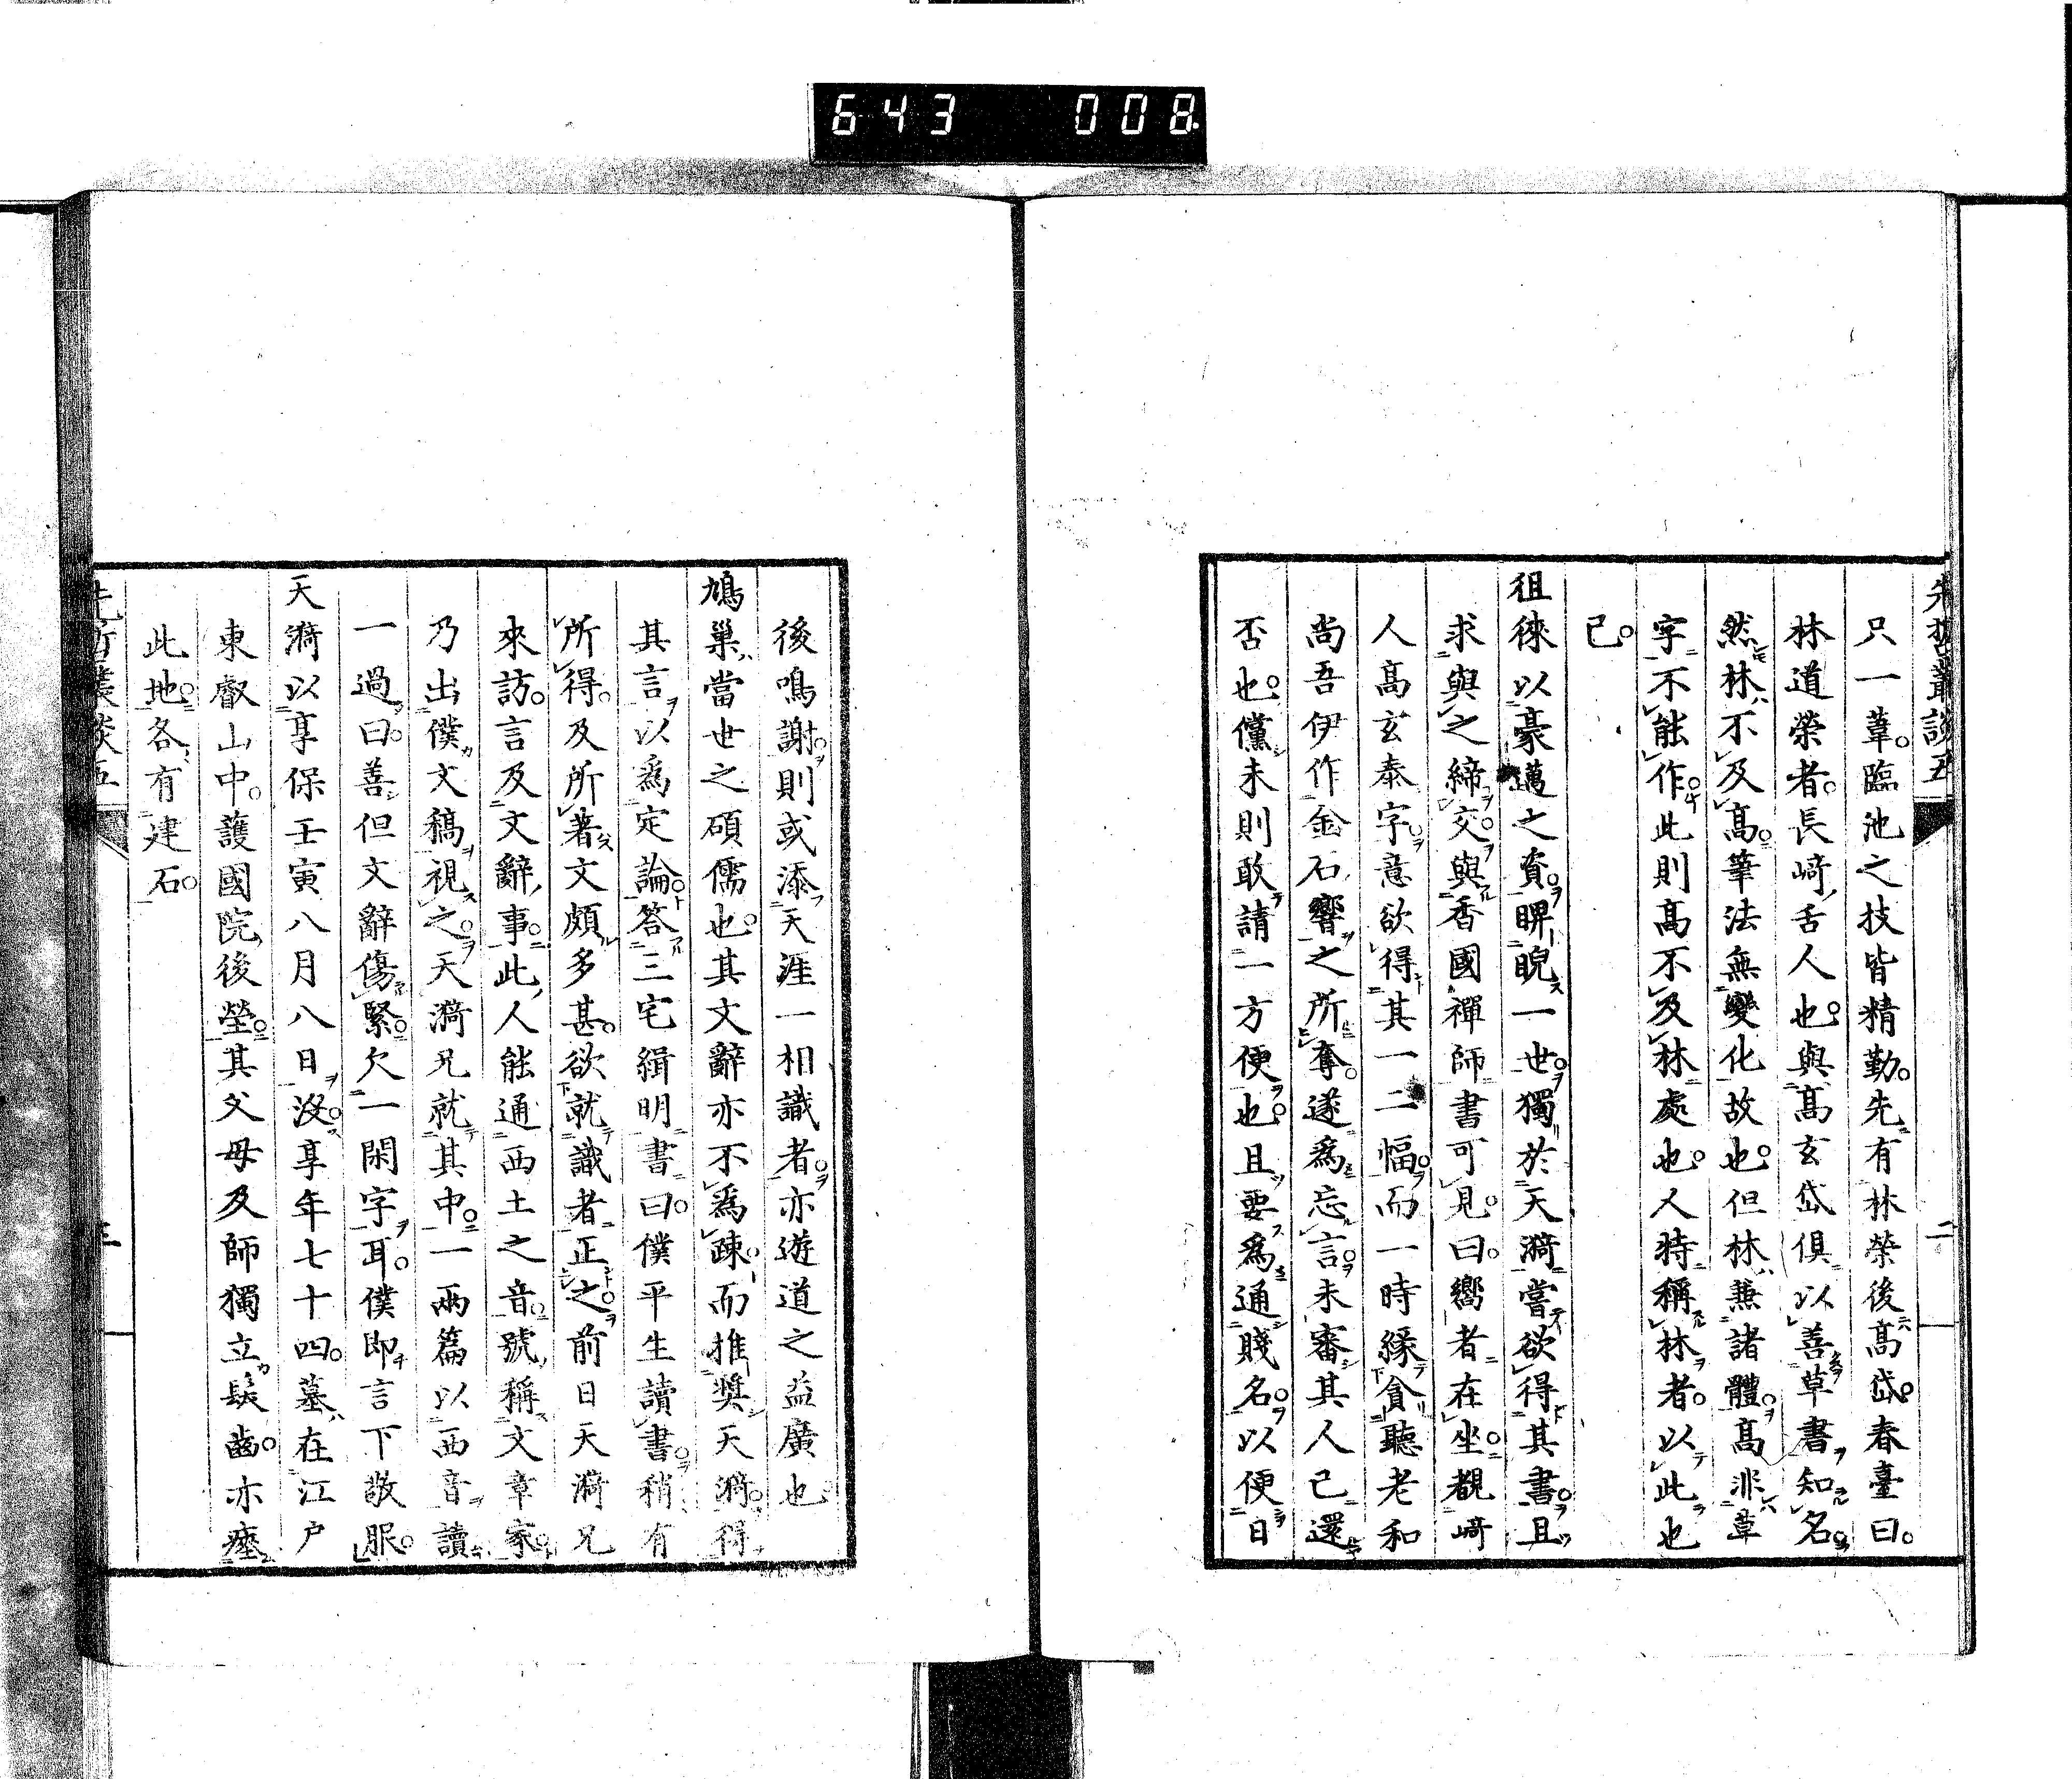 643 008
先哲叢談五 二
只一葦臨池之技皆精勤先有林榮後髙岱春臺曰
林道榮者長﨑舌人也與髙玄岱俱以善草書知名
然林不及髙筆法無變化故也但林兼諸體髙非草
字不能作此則髙不及林處也人時稱林者以此也
已
徂徠以豪邁之資睥睨一世獨於天漪嘗欲得其書且
求與之締交與香國禪師書可見曰嚮者在坐覩﨑
人髙玄泰字意欲得其一二幅而一時緣貪聽老和
尚吾伊作金石響之所奪遂爲忘言未審其人已還
否也儻未則敢請一方便也且要爲通賤名以便日
後鳴謝則或添天涯一相識者亦遊道之益廣也
鳩巢當世之碩儒也其文辭亦不爲踈而推奬天漪得
其言以爲定論答三宅緝明書曰僕平生讀書稍有
所得及所著文頗多甚欲就識者正之前日天漪兄
來訪言及文辭事此人能通西土之音號稱文章家
乃出僕文稿視之天漪兄就其中一兩篇以西音讀
一過曰善但文辭傷緊欠一閑字耳僕即言下敬服
天漪以享保壬寅八月八日沒享年七十四墓在江戶
東叡山中護國院後塋其父母及師獨立髮齒亦瘞
此地各有建石
先哲叢談五 三